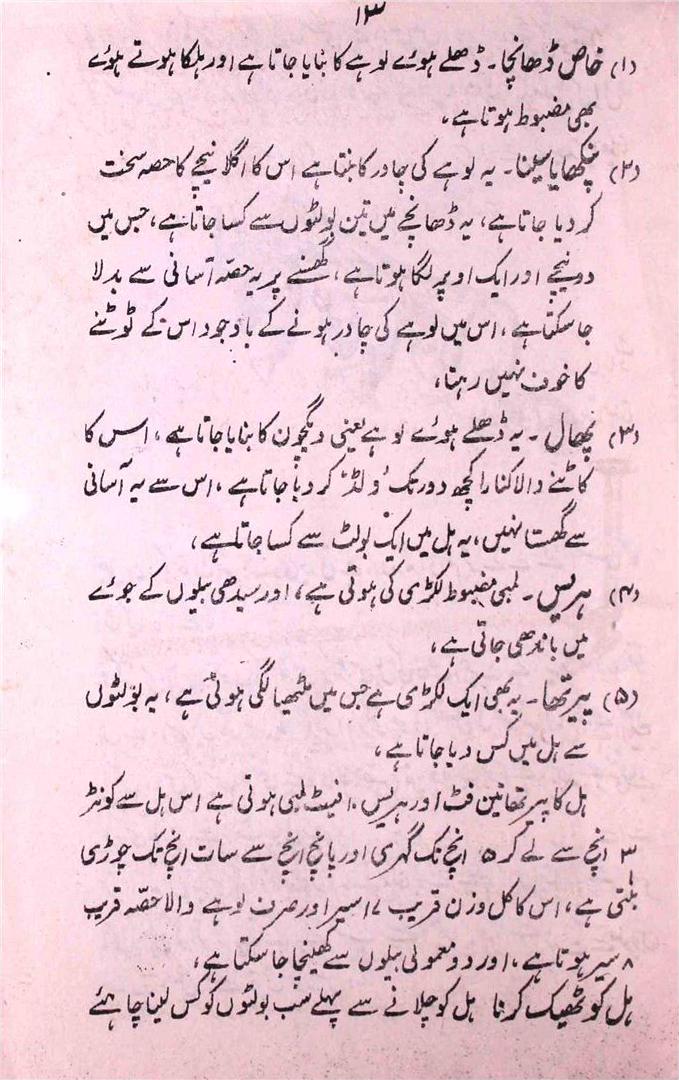 ۱۳
(۱) خاص ڈھانچا۔ ڈھلے ہوئے لوہے کا بنایا جاتا ہے اور ہلکا ہوتے ہوئے
بھی مضبوط ہوتا ہے،
(۲) پنکھا یا سینا۔ یہ لوہے کی چادر کا بنتا ہے اس کا اگلا نیچے کا حصہ سخت
کر دیا جاتا ہے، یہ ڈھانچے میں تین بولٹوں سے کسا جاتا ہے، جس میں
دو نیچے اور ایک اوپر لگا ہوتا ہے، گھسنے پر یہ حصّہ آسانی سے بدلا
جا سکتا ہے، اس میں لوہے کی چادر ہونے کے باوجود اس کے ٹوٹنے
کا خوف نہیں رہتا،
(۳) پھال۔ یہ ڈھلے ہوئے لوہے یعنی دیگچون کا بنایا جاتا ہے، اس کا
کاٹنے والا کنارا کچھ دور تک ’ولڈ‘ کر دیا جاتا ہے، اس سے یہ آسانی
سے گھستا نہیں، یہ ہل میں ایک بولٹ سے کسا جاتا ہے،
(۴) ہریس۔ لمبی مضبوط لکڑی کی ہوتی ہے، اور سیدھی بیلوں کے جوئے
میں باندھی جاتی ہے،
(۵) پیرتھا۔ یہ بھی ایک لکڑی ہے جس میں مٹھیا لگی ہوئی ہے، یہ بولٹوں
سے ہل میں کس دیا جاتا ہے،
ہل کا پیرتھا تین فٹ اور ہریس ۱۰ فیٹ لمبی ہوتی ہے اس ہل سے کونڑ
۳ انچ سے لے کر ۵ انچ تک گہری اور پانچ انچ سے سات انچ تک چوڑی
بنتی ہے، اس کا کل وزن قریب ۱۷ سیر اور صرف لوہے والا حصّہ قریب
۸ سیر ہوتا ہے، اور دو معمولی بیلوں سے کھینچا جا سکتا ہے،
ہل کو ٹھیک کرنا ہل کو چلانے سے پہلے سب بولٹوں کو کس لینا چاہئے